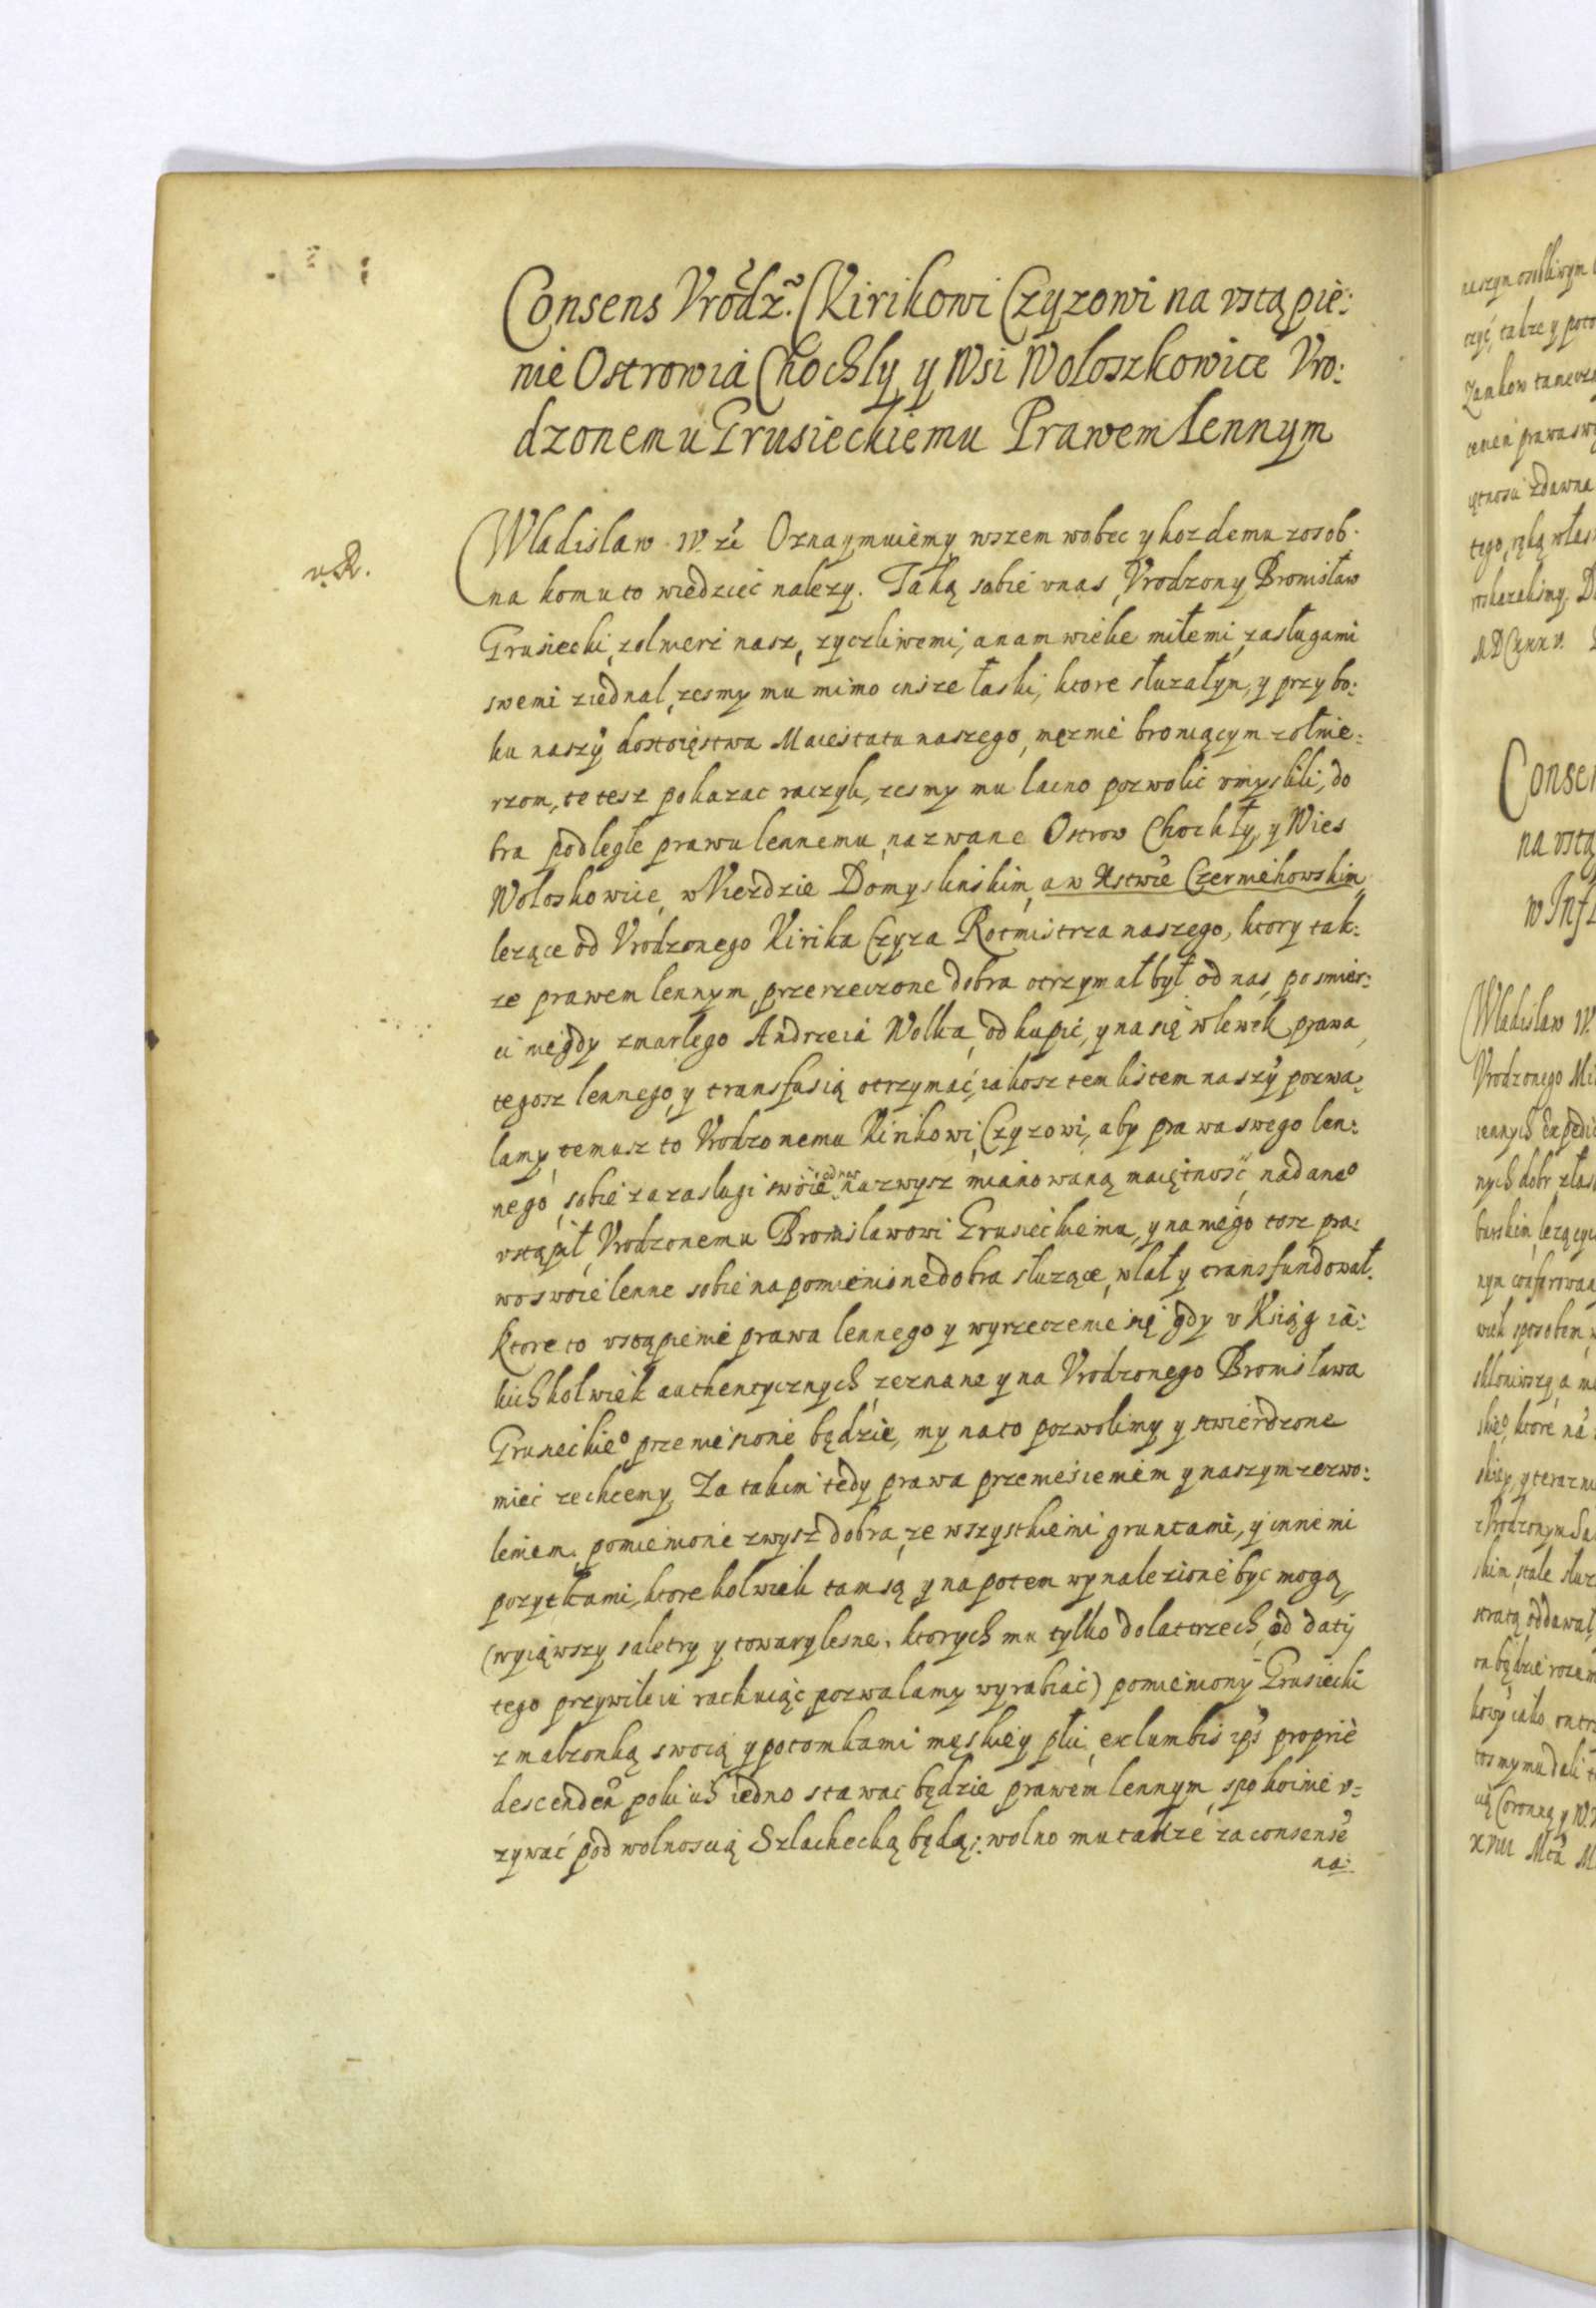 Consens Vrodz.º Kirikowi Czyzowi na vstąpie:
nie Ostrowia Chochly y Wsi Woloszkowice Vro:
dzonemu Grusieckiemu Prawem lennym
v.R.
Wladislaw IV. zc Oznaymuiemy wszem wobec y kozdemu zosob:
na komu to wiedzieć nalezy. Taką sobie v nas Vrodzony Bronisław
Grusiecki, zolnierz nasz, zyczliwemi, a nam wielce miłemi zasługami
swemi ziednal, zesmy mu mimo insze łaski, ktore słuzałym, y przy bo:
ku naszÿ dostoięstwa Maiestatu naszego, męznie broniącym zołnie:
rzom, te tesz pokazac raczyli, zesmy mu lacno pozwolic vmyslili, do
bra podlegle prawu lennemu, nazwane Ostrow Chochły, y Wies
Woloskowice, w Viezdzie Domyslinskim, a w Xstwie Czerniehowskim
lezące od Vrodzonego Kirika Czyza Rotmistrza naszego, ktory tak:
ze prawem lennym, przerzeczone dobra otrzymał był od nas, po smier:
ci niegdy zmarłego Andrzeia Wolka, odkupić, y na się wlewek prawa
tegosz lennego, y transfusią otrzymać, iakosz tem listem naszÿ pozwa:
lamy, temusz to Vrodzonemu Kirikowi Czyzowi, aby prawa swego len:
nego, sobie za zaslugi swoie od nas nazwysz mianowaną maiętność, nadaneº
vstąpił, Vrodzonemu Bronislawowi Grusieckiemu, y na niego tosz pra:
wo swoie lenne sobie na pomienione dobra słuzące, wlał y transfundował.
Ktore to vstąpienie prawa lennego y wyrzeczenie się gdy v Ksiąg ia:
kichkolwiek authentycznych, zeznane y na Vrodzonego Bronisława
Grusieckieº przeniesione będzie, my na to pozwolimy y stwierdzone
mieć zechcemy. Za takim tedy prawa przeniesieniem y naszym zezwo:
leniem, pomienione zwysz dobra, ze wszystkiemi gruntami, y innemi
pozytkami, ktorekolwiek tam są, y napotem wynalezione byc mogą,
(wyiąwszy saletry y towary lesne, ktorych mu tylko do lat trzech, od datÿ
tego przywileiu rachuiąc pozwalamy wyrabiać) pomieniony Grusiecki
z malzonką swoią y potomkami męskiey płci, ex lumbis ips proprie
descenden poki ich iedno stawac będzie prawem lennym, spokoinie v:
zywać pod wolnoscią Szlachecką będą; wolno mu takze za consense
na: